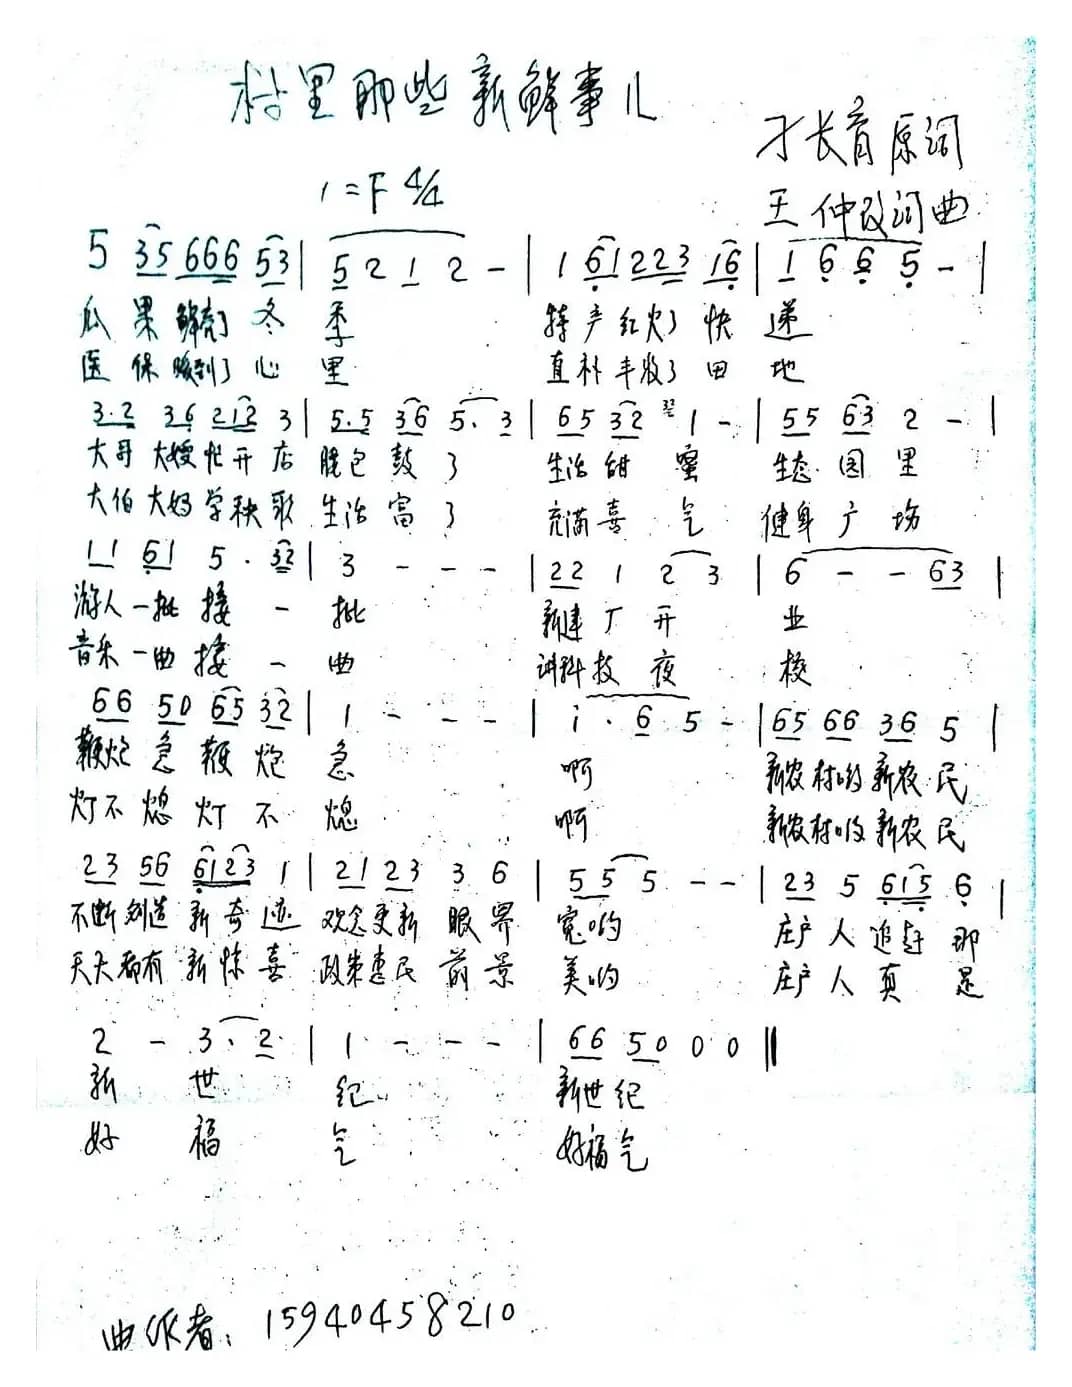 村里那些新鲜事儿
才长育原词
1=F 4/4
王仲改词曲
5 35 666 53 | 5 2 1 2 - | 1 61 223 16 | 1 6 6 5 - |
瓜果鲜亮了冬季 特产红火了快递
医保暖到了心里 直补丰收了田地
3·2 36 212 3 | 5·5 36 5·3 | 65 32 32 1 - | 55 63 2 - |
大哥大嫂忙开店 腰包鼓了 生活甜蜜 生态园里
大伯大妈学秧歌 生活富了 充满喜气 健身广场
11 61 5·32 | 3 - - - | 22 1 2 3 | 6 - - 63 |
游人一批接一批 新建厂开业
音乐一曲接一曲 讲科技夜校
66 50 65 32 | 1 - - - | i·6 5 - | 65 66 36 5 |
鞭炮急鞭炮急 啊 新农村哟新农民
灯不熄灯不熄 啊 新农村哟新农民
23 56 6123 1 | 21 23 3 6 | 55 5 - - | 23 5 615 6 |
不断创造新奇迹 观念更新眼界宽哟 庄户人追赶那
天天都有新惊喜 政策惠民前景美哟 庄户人真是
2 - 3·2 | 1 - - - | 66 50 0 0 ‖
新世纪 新世纪
好福气 好福气
曲作者：15940458210